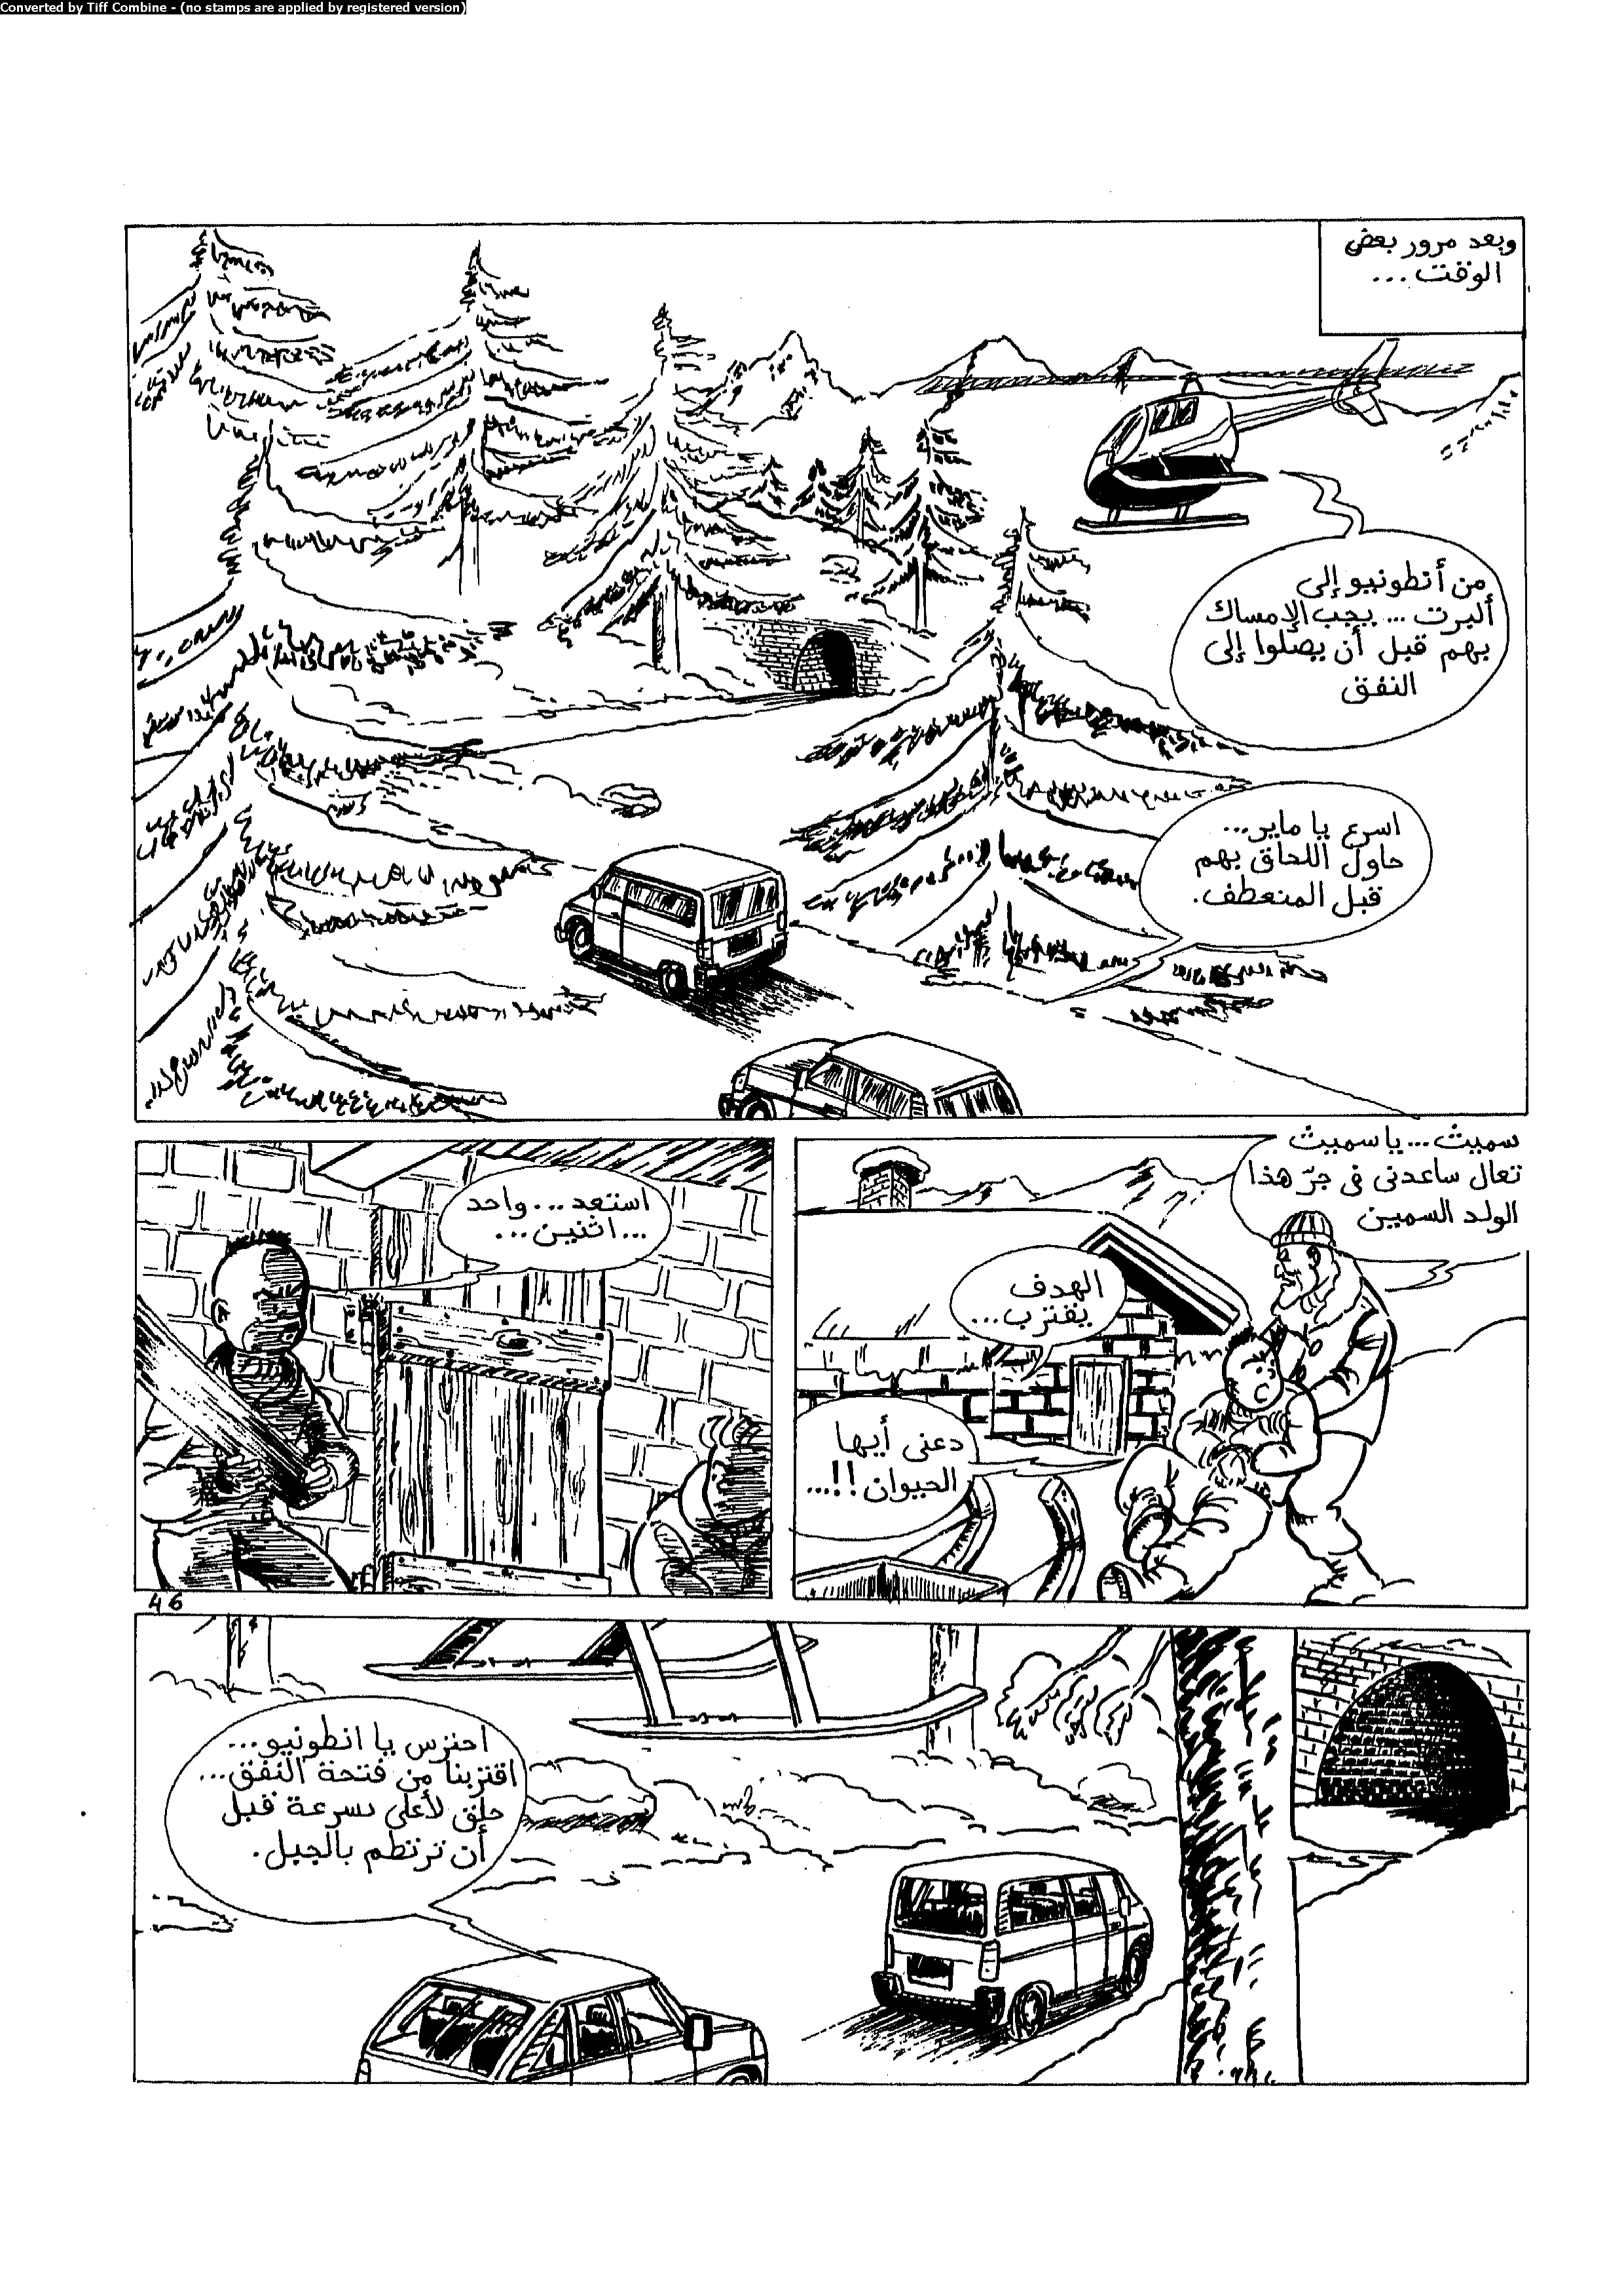 Converted by Tiff Combine - (no stamps are applied by registered version)
وبعد مرور بعض
الوقت...
من أنطونيو إلى
ألبرت ... يجب الإمساك
بهم قبل أن يصلوا إلى
النفق
اسرع يا ماير...
حاول اللحاق بهم
قبل المنعطف.
سميث... يا سميث
تعال ساعدنى فى جرّ هذا
الولد السمين
الهدف
يقترب...
دعنى أيها
الحيوان!!...
استعد... واحد
...اثنين...
46
احترس يا انطونيو...
اقتربنا من فتحة النفق...
حلق لأعلى بسرعة قبل
أن ترتطم بالجبل.